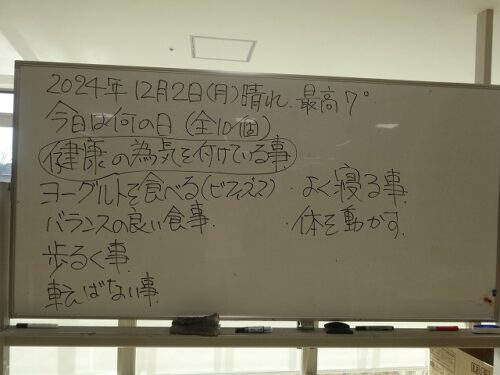 2024年12月2日(月)晴れ. 最高7°
今日は何の日 (全10個)
健康の為気を付けている事
ヨーグルトを食べる(ビフィズス) ・よく寝る事
バランスの良い食事 ・体を動かす
歩るく事
転ばない事